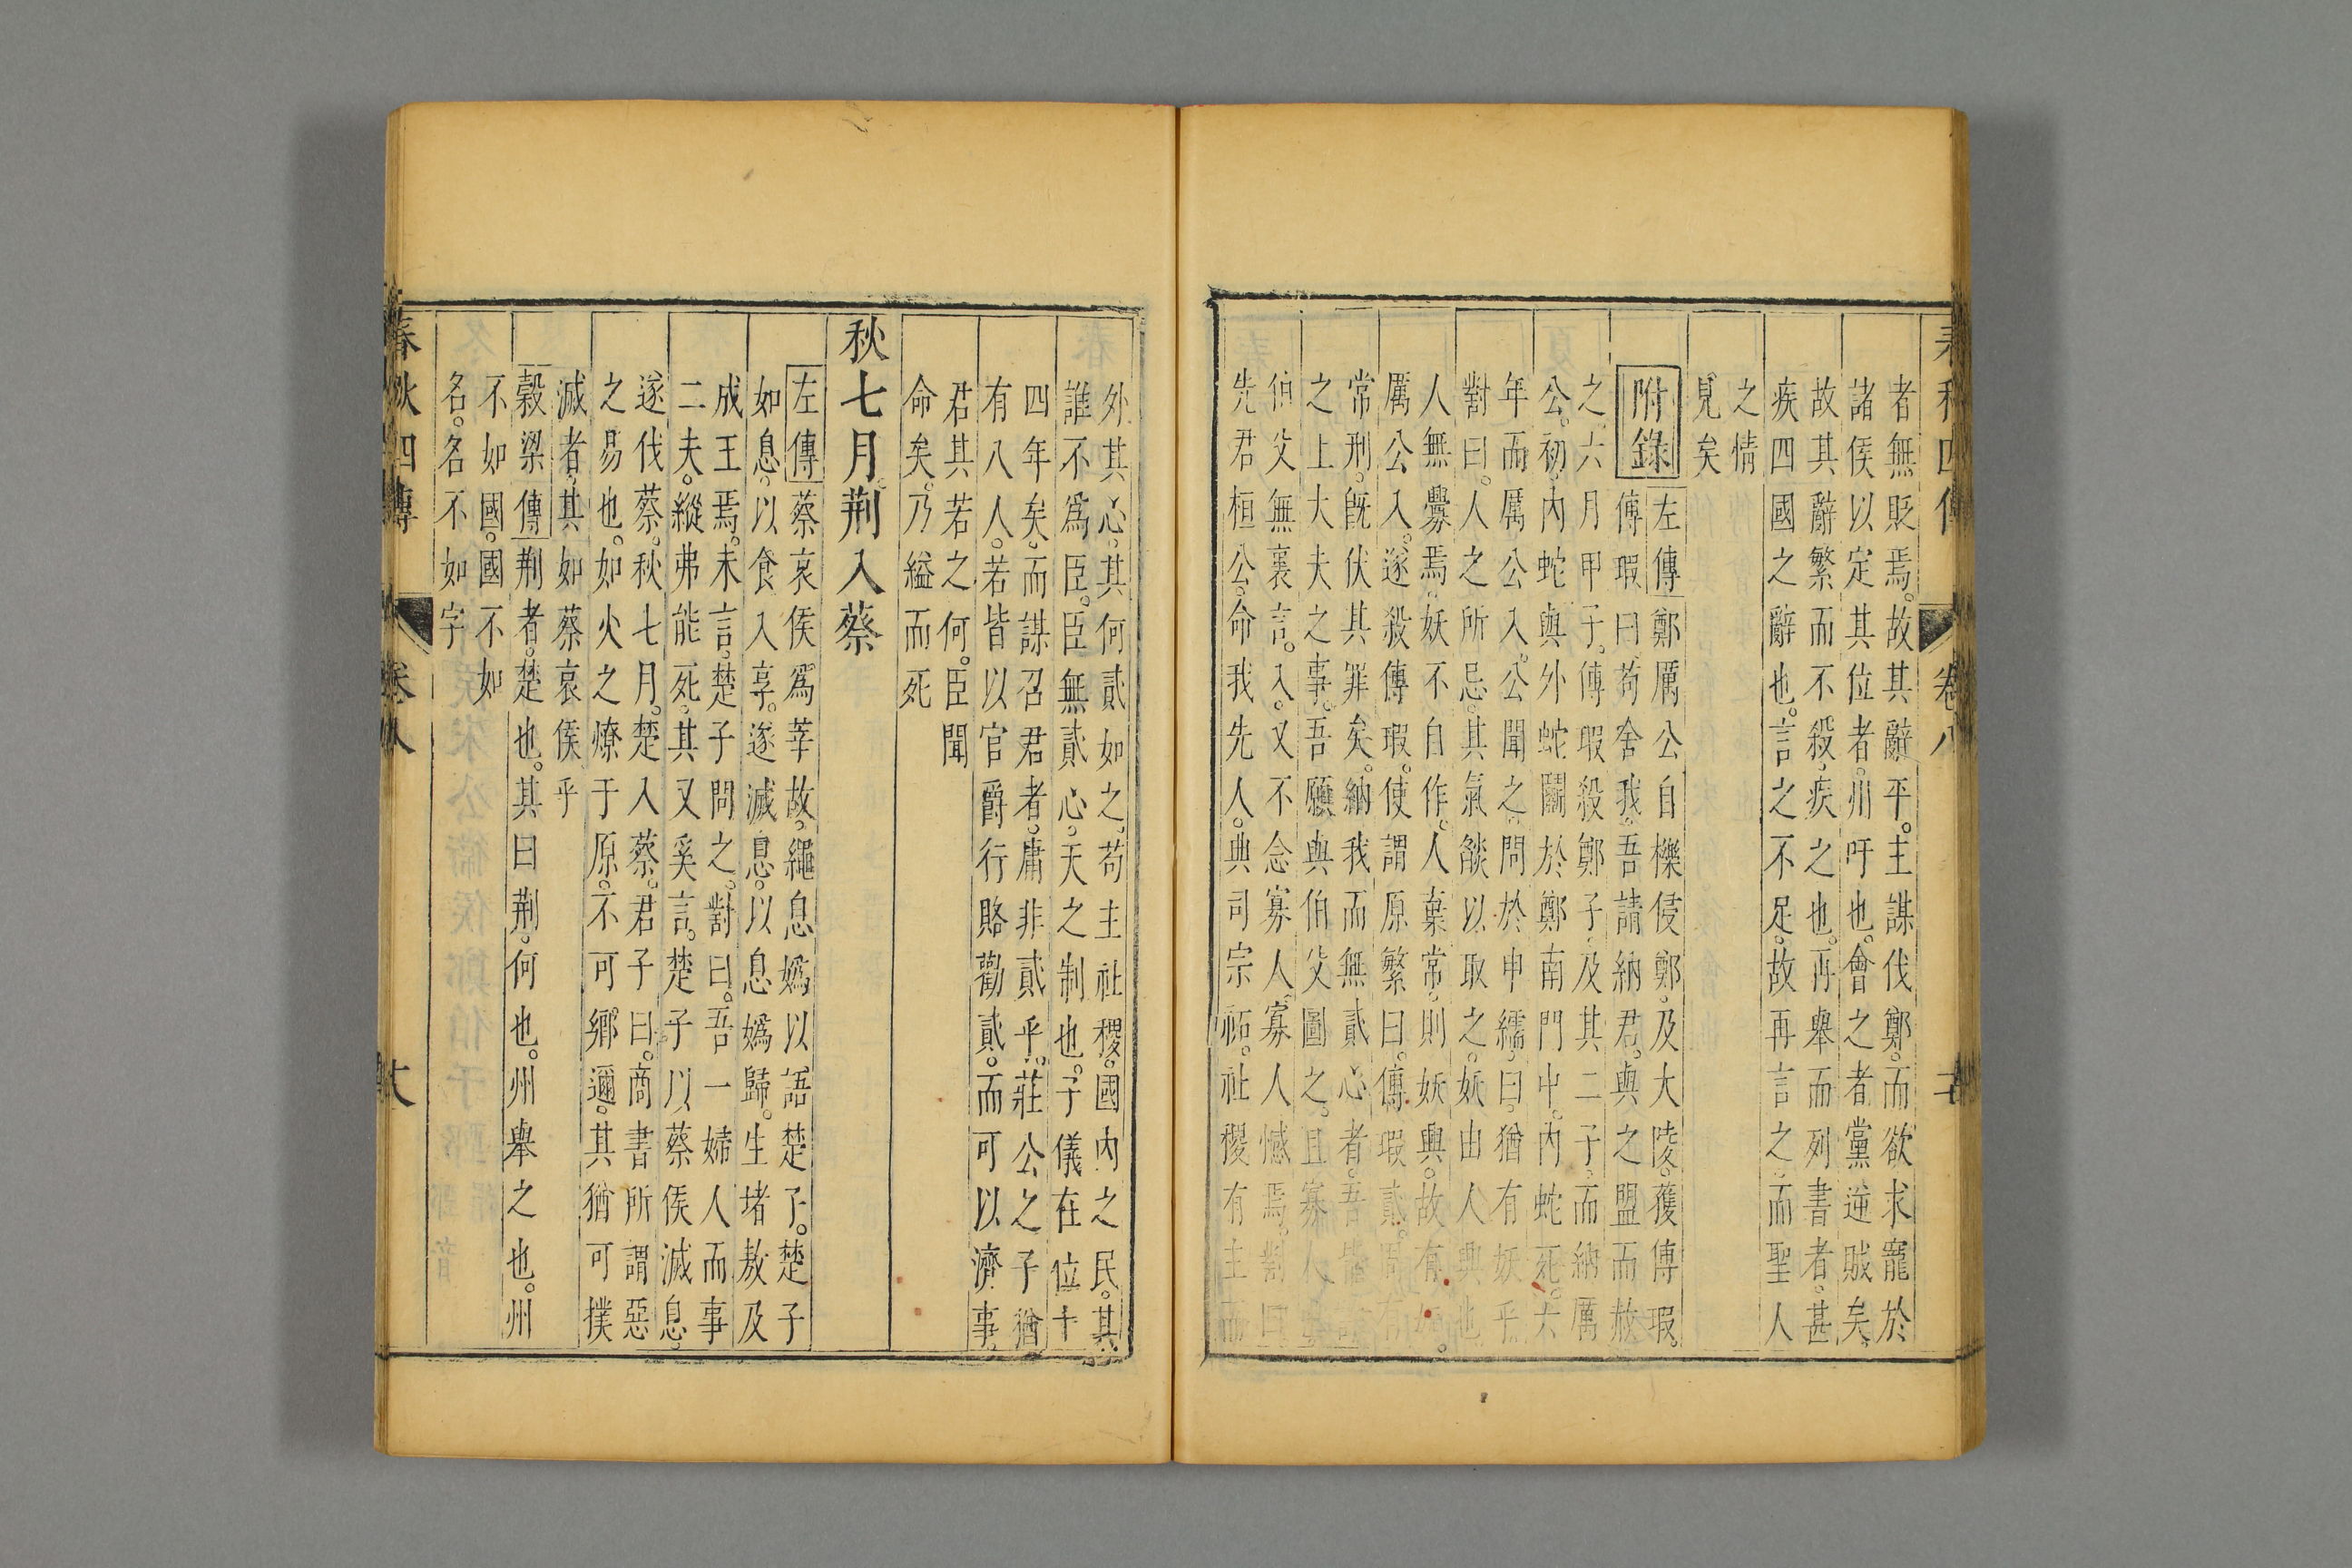 春秋四傳 卷八
者無貶焉。故其辭平。主謀伐鄭。而欲求寵於
諸侯以定其位者。州吁也。會之者黨逆賊矣。
故其辭繁而不殺。疾之也。再舉而列書者。甚
疾四國之辭也。言之不足。故再言之。而聖人
之情
見矣
附錄
左傳鄭厲公自櫟侵鄭。及大陵。獲傳瑕。
傳瑕曰。苟舍我。吾請納君。與之盟而赦
之。六月甲子。傳瑕殺鄭子。及其二子。而納厲
公。初。內蛇與外蛇鬭於鄭南門中。內蛇死。六
年而厲公入。公聞之。問於申繻。曰。猶有妖乎。
對曰。人之所忌。其氣燄以取之。妖由人興也
人無釁焉。妖不自作。人棄常。則妖興。故有妖。
厲公入。遂殺傳瑕。使謂原繁曰。傳瑕貳。周有
常刑。旣伏其罪矣。納我而無貳心者。吾皆許
之上大夫之事。吾願與伯父圖之。且寡人出
伯父無裏言。入。又不念寡人。寡人憾焉。對曰
先君桓公。命我先人。典司宗祏。社稷有主而
外其心。其何貳如之。苟主社稷。國內之民。其
誰不爲臣。臣無貳心。天之制也。子儀在位十
四年矣。而謀召君者。庸非貳乎。莊公之子猶
有八人。若皆以官爵行賂勸貳。而可以濟事。
君其若之何。臣聞
命矣。乃縊而死
秋七月荆入蔡
左傳蔡哀侯爲莘故。繩息嬀以語楚子。楚子
如息。以食入享。遂滅息。以息嬀歸。生堵敖及
成王焉。未言。楚子問之。對曰。吾一婦人而事
二夫。縱弗能死。其又奚言。楚子以蔡侯滅息。
遂伐蔡。秋七月。楚入蔡。君子曰。商書所謂惡
之易也。如火之燎于原。不可鄉邇。其猶可撲
滅者。其如蔡哀侯乎
穀梁傳荆者。楚也。其曰荆。何也。州舉之也。州
不如國。國不如
名。名不如字
春秋四傳 卷八 十六